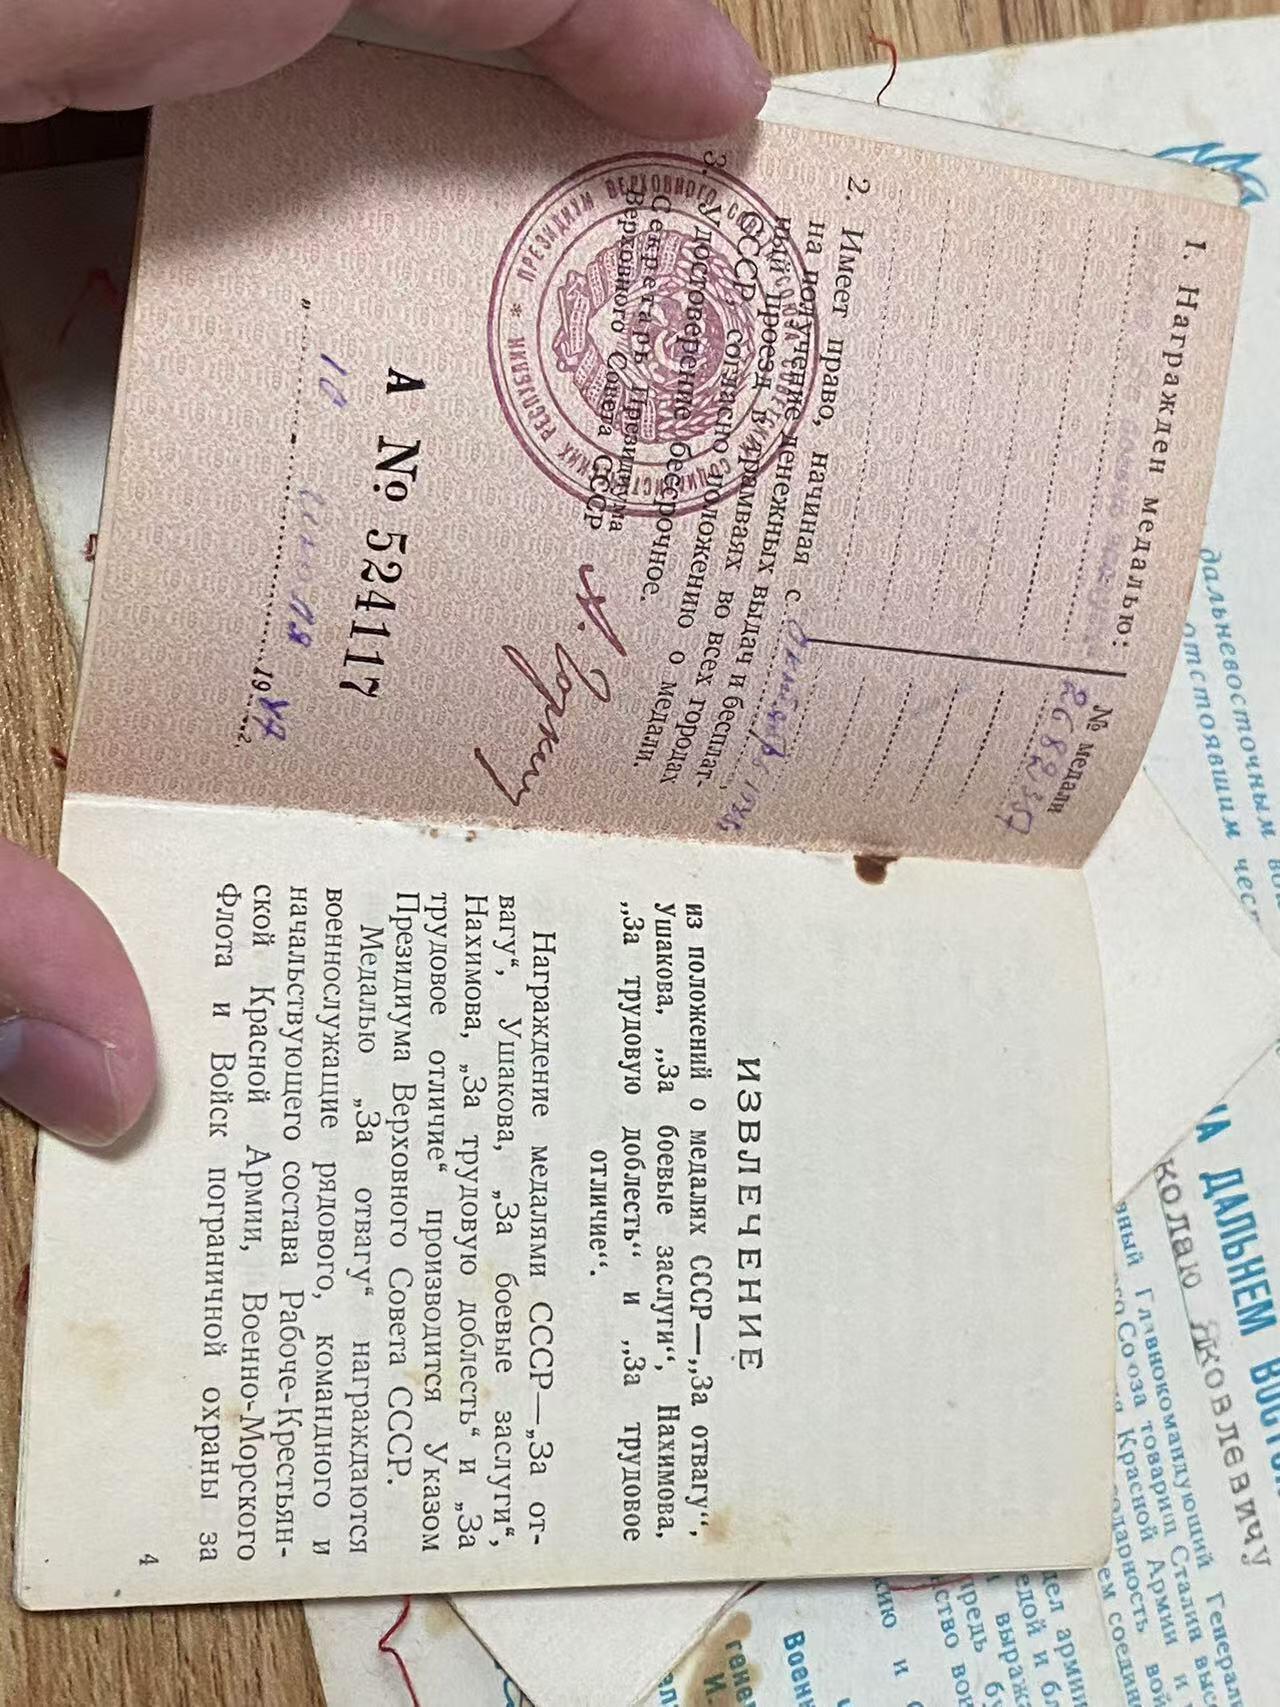 1. Награжден медалью:
№ медали
2682357
2. Имеет право, начиная с
на получение денежных выдач и бесплат-
ный проезд в трамваях во всех городах
СССР, согласно положению о медали.
3. Удостоверение бессрочное.
Секретарь Президиума
Верховного Совета СССР
ПРЕЗИДИУМ ВЕРХОВНОГО СОВЕТА СОЮЗА СОВЕТСКИХ СОЦИАЛИСТИЧЕСКИХ РЕСПУБЛИК
А № 524117
„ 10 “ июля 1947 г.
ИЗВЛЕЧЕНИЕ
из положений о медалях СССР—„За отвагу“,
Ушакова, „За боевые заслуги“, Нахимова,
„За трудовую доблесть“ и „За трудовое
отличие“.
Награждение медалями СССР—„За от-
вагу“, Ушакова, „За боевые заслуги“,
Нахимова, „За трудовую доблесть“ и „За
трудовое отличие“ производится Указом
Президиума Верховного Совета СССР.
Медалью „За отвагу“ награждаются
военнослужащие рядового, командного и
начальствующего состава Рабоче-Крестьян-
ской Красной Армии, Военно-Морского
Флота и Войск пограничной охраны за
4
дальневосточным
отстоявшим
ДАЛЬНЕМ
колаю Яковлевичу
Главнокомандующий Генерал
товарищ Сталин
Красной Армии